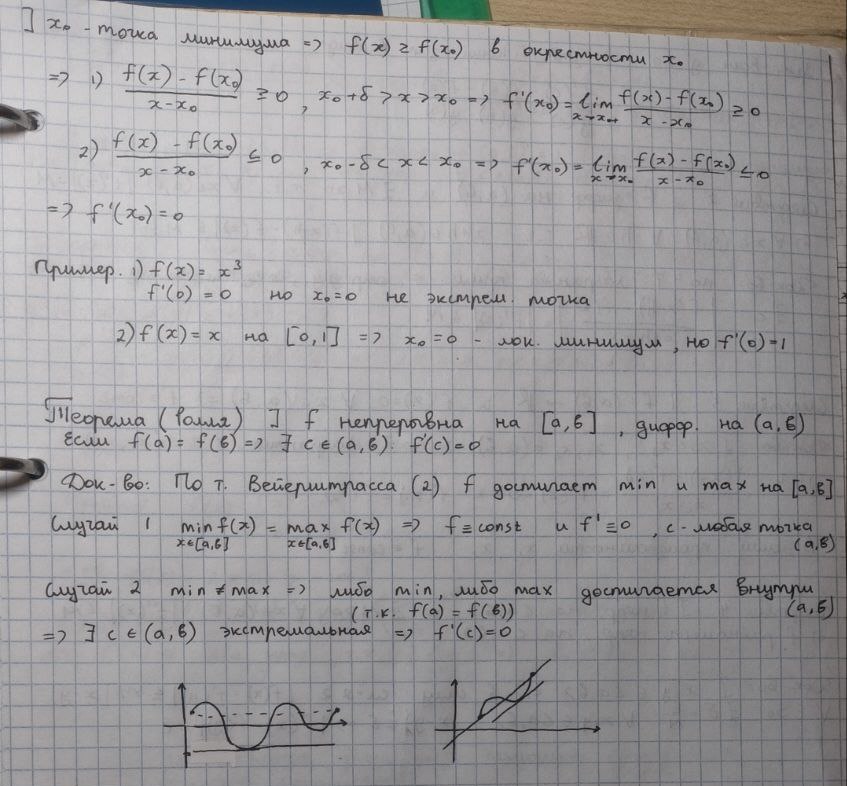 ] x₀ - точка минимума => f(x) ≥ f(x₀) в окрестности x₀
=> 1) (f(x) - f(x₀))/(x - x₀) ≥ 0, x₀ + δ > x > x₀ => f'(x₀) = lim_{x→x₀₊} (f(x) - f(x₀))/(x - x₀) ≥ 0
2) (f(x) - f(x₀))/(x - x₀) ≤ 0, x₀ - δ < x < x₀ => f'(x₀) = lim_{x→x₀} (f(x) - f(x₀))/(x - x₀) ≤ 0
=> f'(x₀) = 0
Пример. 1) f(x) = x³
f'(0) = 0 но x₀ = 0 не экстрем. точка
2) f(x) = x на [0,1] => x₀ = 0 - лок. минимум, но f'(0) = 1
Теорема (Ролля) ] f непрерывна на [a, b], дифф. на (a, b)
Если f(a) = f(b) => ∃ c ∈ (a, b): f'(c) = 0
Док-во: По т. Вейерштрасса (2) f достигает min и max на [a, b]
Случай 1 min_{x∈[a,b]} f(x) = max_{x∈[a,b]} f(x) => f ≡ const и f' ≡ 0, c - любая точка
(a, b)
Случай 2 min ≠ max => либо min, либо max достигается внутри
(т.к. f(a) = f(b)) (a, b)
=> ∃ c ∈ (a, b) экстремальная => f'(c) = 0